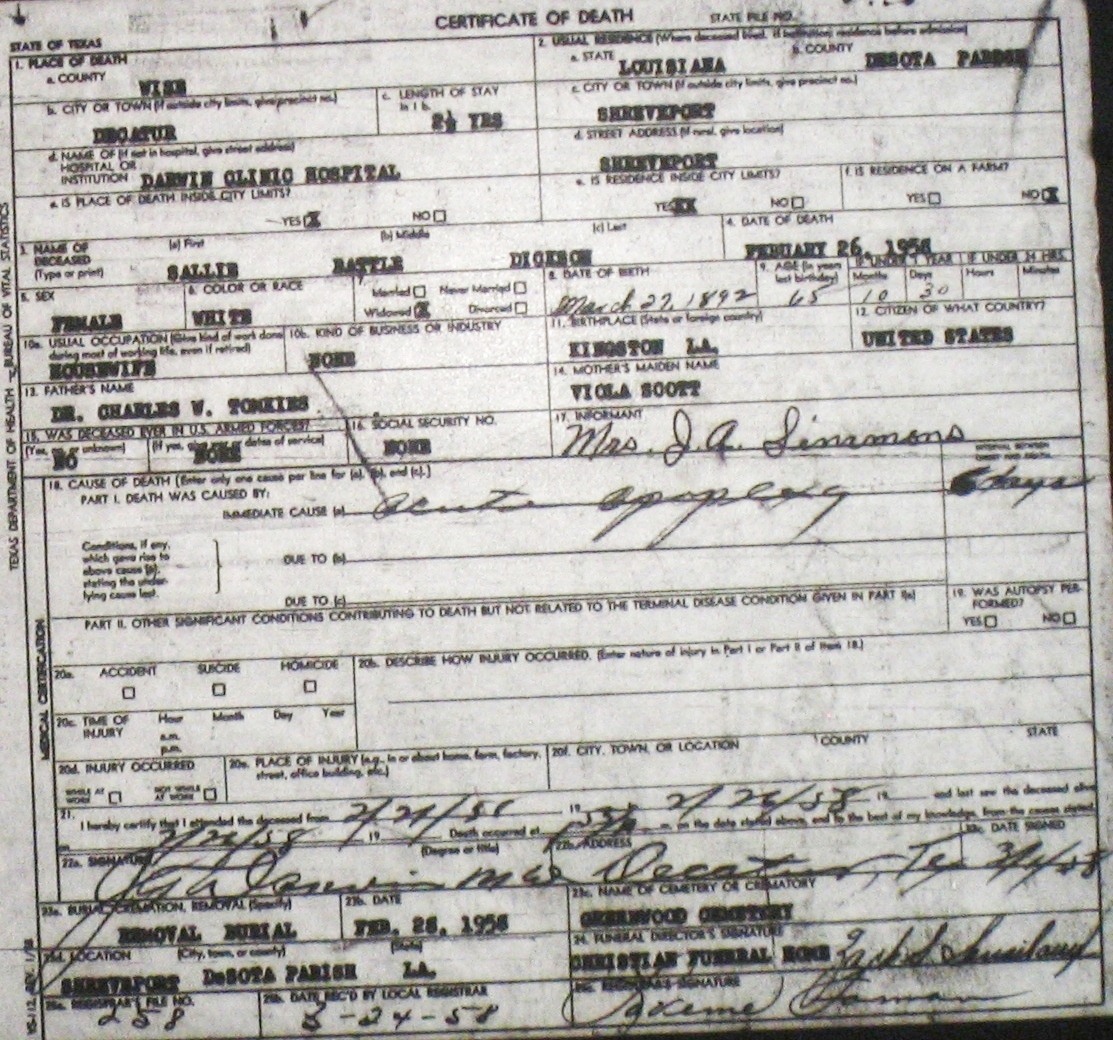 CERTIFICATE OF DEATH STATE FILE NO.
STATE OF TEXAS
1. PLACE OF DEATH
a. COUNTY
WISE
2. USUAL RESIDENCE (Where deceased lived. If institution: residence before admission)
a. STATE b. COUNTY
LOUISIANA DESOTA PARISH
b. CITY OR TOWN (If outside city limits, give precinct no.)
DECATUR
c. LENGTH OF STAY
in 1 b.
2½ YRS
c. CITY OR TOWN (If outside city limits, give precinct no.)
SHREVEPORT
d. NAME OF (If not in hospital, give street address)
HOSPITAL OR
INSTITUTION DARWIN CLINIC HOSPITAL
d. STREET ADDRESS (If rural, give location)
SHREVEPORT
e. IS PLACE OF DEATH INSIDE CITY LIMITS?
YES X NO
e. IS RESIDENCE INSIDE CITY LIMITS?
YES XX NO
f. IS RESIDENCE ON A FARM?
YES NO X
3. NAME OF
DECEASED
(Type or print)
(a) First (b) Middle (c) Last
SALLIE BATTLE DICKSON
4. DATE OF DEATH
FEBUARY 26, 1958
5. SEX
FEMALE
6. COLOR OR RACE
WHITE
7.
Married Never Married
Widowed X Divorced
8. DATE OF BIRTH
March 27, 1892
9. AGE (In years
last birthday)
65
IF UNDER 1 YEAR IF UNDER 24 HRS.
Months Days Hours Minutes
10 30
10a. USUAL OCCUPATION (Give kind of work done
during most of working life, even if retired)
HOUSEWIFE
10b. KIND OF BUSINESS OR INDUSTRY
NONE
11. BIRTHPLACE (State or foreign country)
KINGSTON LA.
12. CITIZEN OF WHAT COUNTRY?
UNITED STATES
13. FATHER'S NAME
DR. CHARLES W. TOMKIES
14. MOTHER'S MAIDEN NAME
VIOLA SCOTT
15. WAS DECEASED EVER IN U.S. ARMED FORCES?
(Yes, no, or unknown) (If yes, give war or dates of service)
NO NONE
16. SOCIAL SECURITY NO.
NONE
17. INFORMANT
Mrs. J. A. Simmons
18. CAUSE OF DEATH (Enter only one cause per line for (a), (b), and (c).)
INTERVAL BETWEEN
ONSET AND DEATH
PART I. DEATH WAS CAUSED BY:
IMMEDIATE CAUSE (a) acute apoplexy days
Conditions, if any,
which gave rise to
above cause (a),
stating the under-
lying cause last.
DUE TO (b)
DUE TO (c)
PART II. OTHER SIGNIFICANT CONDITIONS CONTRIBUTING TO DEATH BUT NOT RELATED TO THE TERMINAL DISEASE CONDITION GIVEN IN PART I(a)
19. WAS AUTOPSY PER-
FORMED?
YES NO
20a. ACCIDENT SUICIDE HOMICIDE
20b. DESCRIBE HOW INJURY OCCURRED. (Enter nature of injury in Part I or Part II of Item 18.)
20c. TIME OF
INJURY
Hour Month Day Year
a.m.
p.m.
20d. INJURY OCCURRED
WHILE AT
WORK
NOT WHILE
AT WORK
20e. PLACE OF INJURY (e.g., in or about home, farm, factory,
street, office building, etc.)
20f. CITY, TOWN, OR LOCATION COUNTY STATE
21.
I hereby certify that I attended the deceased from 2/21/58 19 2/26/58 19 and last saw the deceased alive
on 2/26/58 19 Death occurred at m. on the date stated above, and to the best of my knowledge, from the causes stated.
22a. SIGNATURE (Degree or title)
22b. ADDRESS
22c. DATE SIGNED
Darwin MD Decatur, Tex
23a. BURIAL, CREMATION, REMOVAL (Specify)
REMOVAL BURIAL
23b. DATE
FEB. 28, 1958
23c. NAME OF CEMETERY OR CREMATORY
GREENWOOD CEMETERY
23d. LOCATION (City, town, or county) (State)
SHREVEPORT DeSOTA PARISH LA.
24. FUNERAL DIRECTOR'S SIGNATURE
CHRISTIAN FUNERAL HOME
25a. REGISTRAR'S FILE NO.
258
25b. DATE REC'D BY LOCAL REGISTRAR
3-24-58
25c. REGISTRAR'S SIGNATURE
TEXAS DEPARTMENT OF HEALTH — BUREAU OF VITAL STATISTICS
MEDICAL CERTIFICATION